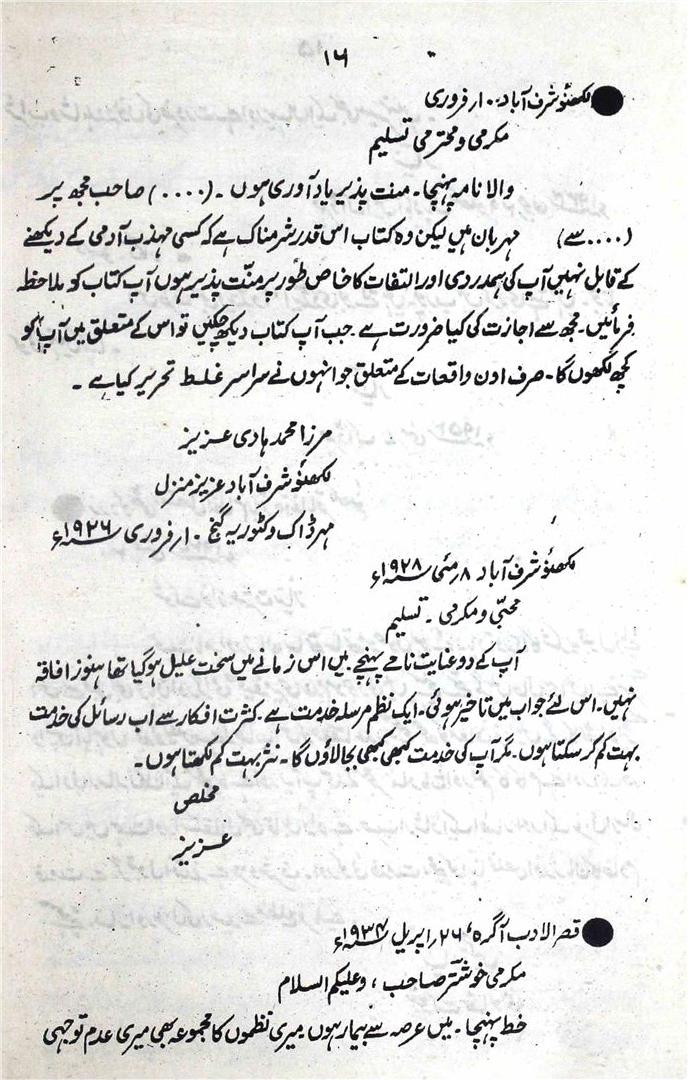 ۱۶
لکھنؤ شرف آباد۔ ۱۰ فروری
مکرمی و محترمی تسلیم
والا نامہ پہنچا۔ منت پذیر یاد آوری ہوں۔ (....) صاحب مجھ پر
(.... سے) مہربان ہیں لیکن وہ کتاب اس قدر شرمناک ہے کہ کسی مہذب آدمی کے دیکھنے
کے قابل نہیں آپ کی ہمدردی اور التفات کا خاص طور پر منّت پذیر ہوں آپ کتاب کو ملاحظہ
فرمائیں۔ مجھ سے اجازت کی کیا ضرورت ہے۔ جب آپ کتاب دیکھ چکیں تو اس کے متعلق میں آپ کو
کچھ لکھوں گا۔ صرف اون واقعات کے متعلق جو انہوں نے سراسر غلط تحریر کیا ہے۔
مرزا محمد ہادی عزیز
لکھنؤ شرف آباد عزیز منزل
مہر ڈاک وکٹوریہ گنج ۱۰ فروری ۱۹۲۶ء
لکھنؤ شرف آباد ۸ مئی ۱۹۲۸ء
محبّی و مکرمی۔ تسلیم
آپ کے دو عنایت نامے پہنچے میں اس زمانے میں سخت علیل ہو گیا تھا ہنوز افاقہ
نہیں۔ اس لئے جواب میں تاخیر ہوئی۔ ایک نظم مرسلہ خدمت ہے۔ کثرت افکار سے اب رسائل کی خدمت
بہت کم کر سکتا ہوں۔ مگر آپ کی خدمت کبھی کبھی بجا لاؤں گا۔ نثر بہت کم لکھتا ہوں۔
مخلص
عزیز
قصر الادب آگرہ، ۲۶ اپریل ۱۹۳۴ء
مکرمی خوشتر صاحب، وعلیکم السلام
خط پہنچا۔ میں عرصہ سے بیمار ہوں۔ میری نظموں کا مجموعہ بھی میری عدم توجہی